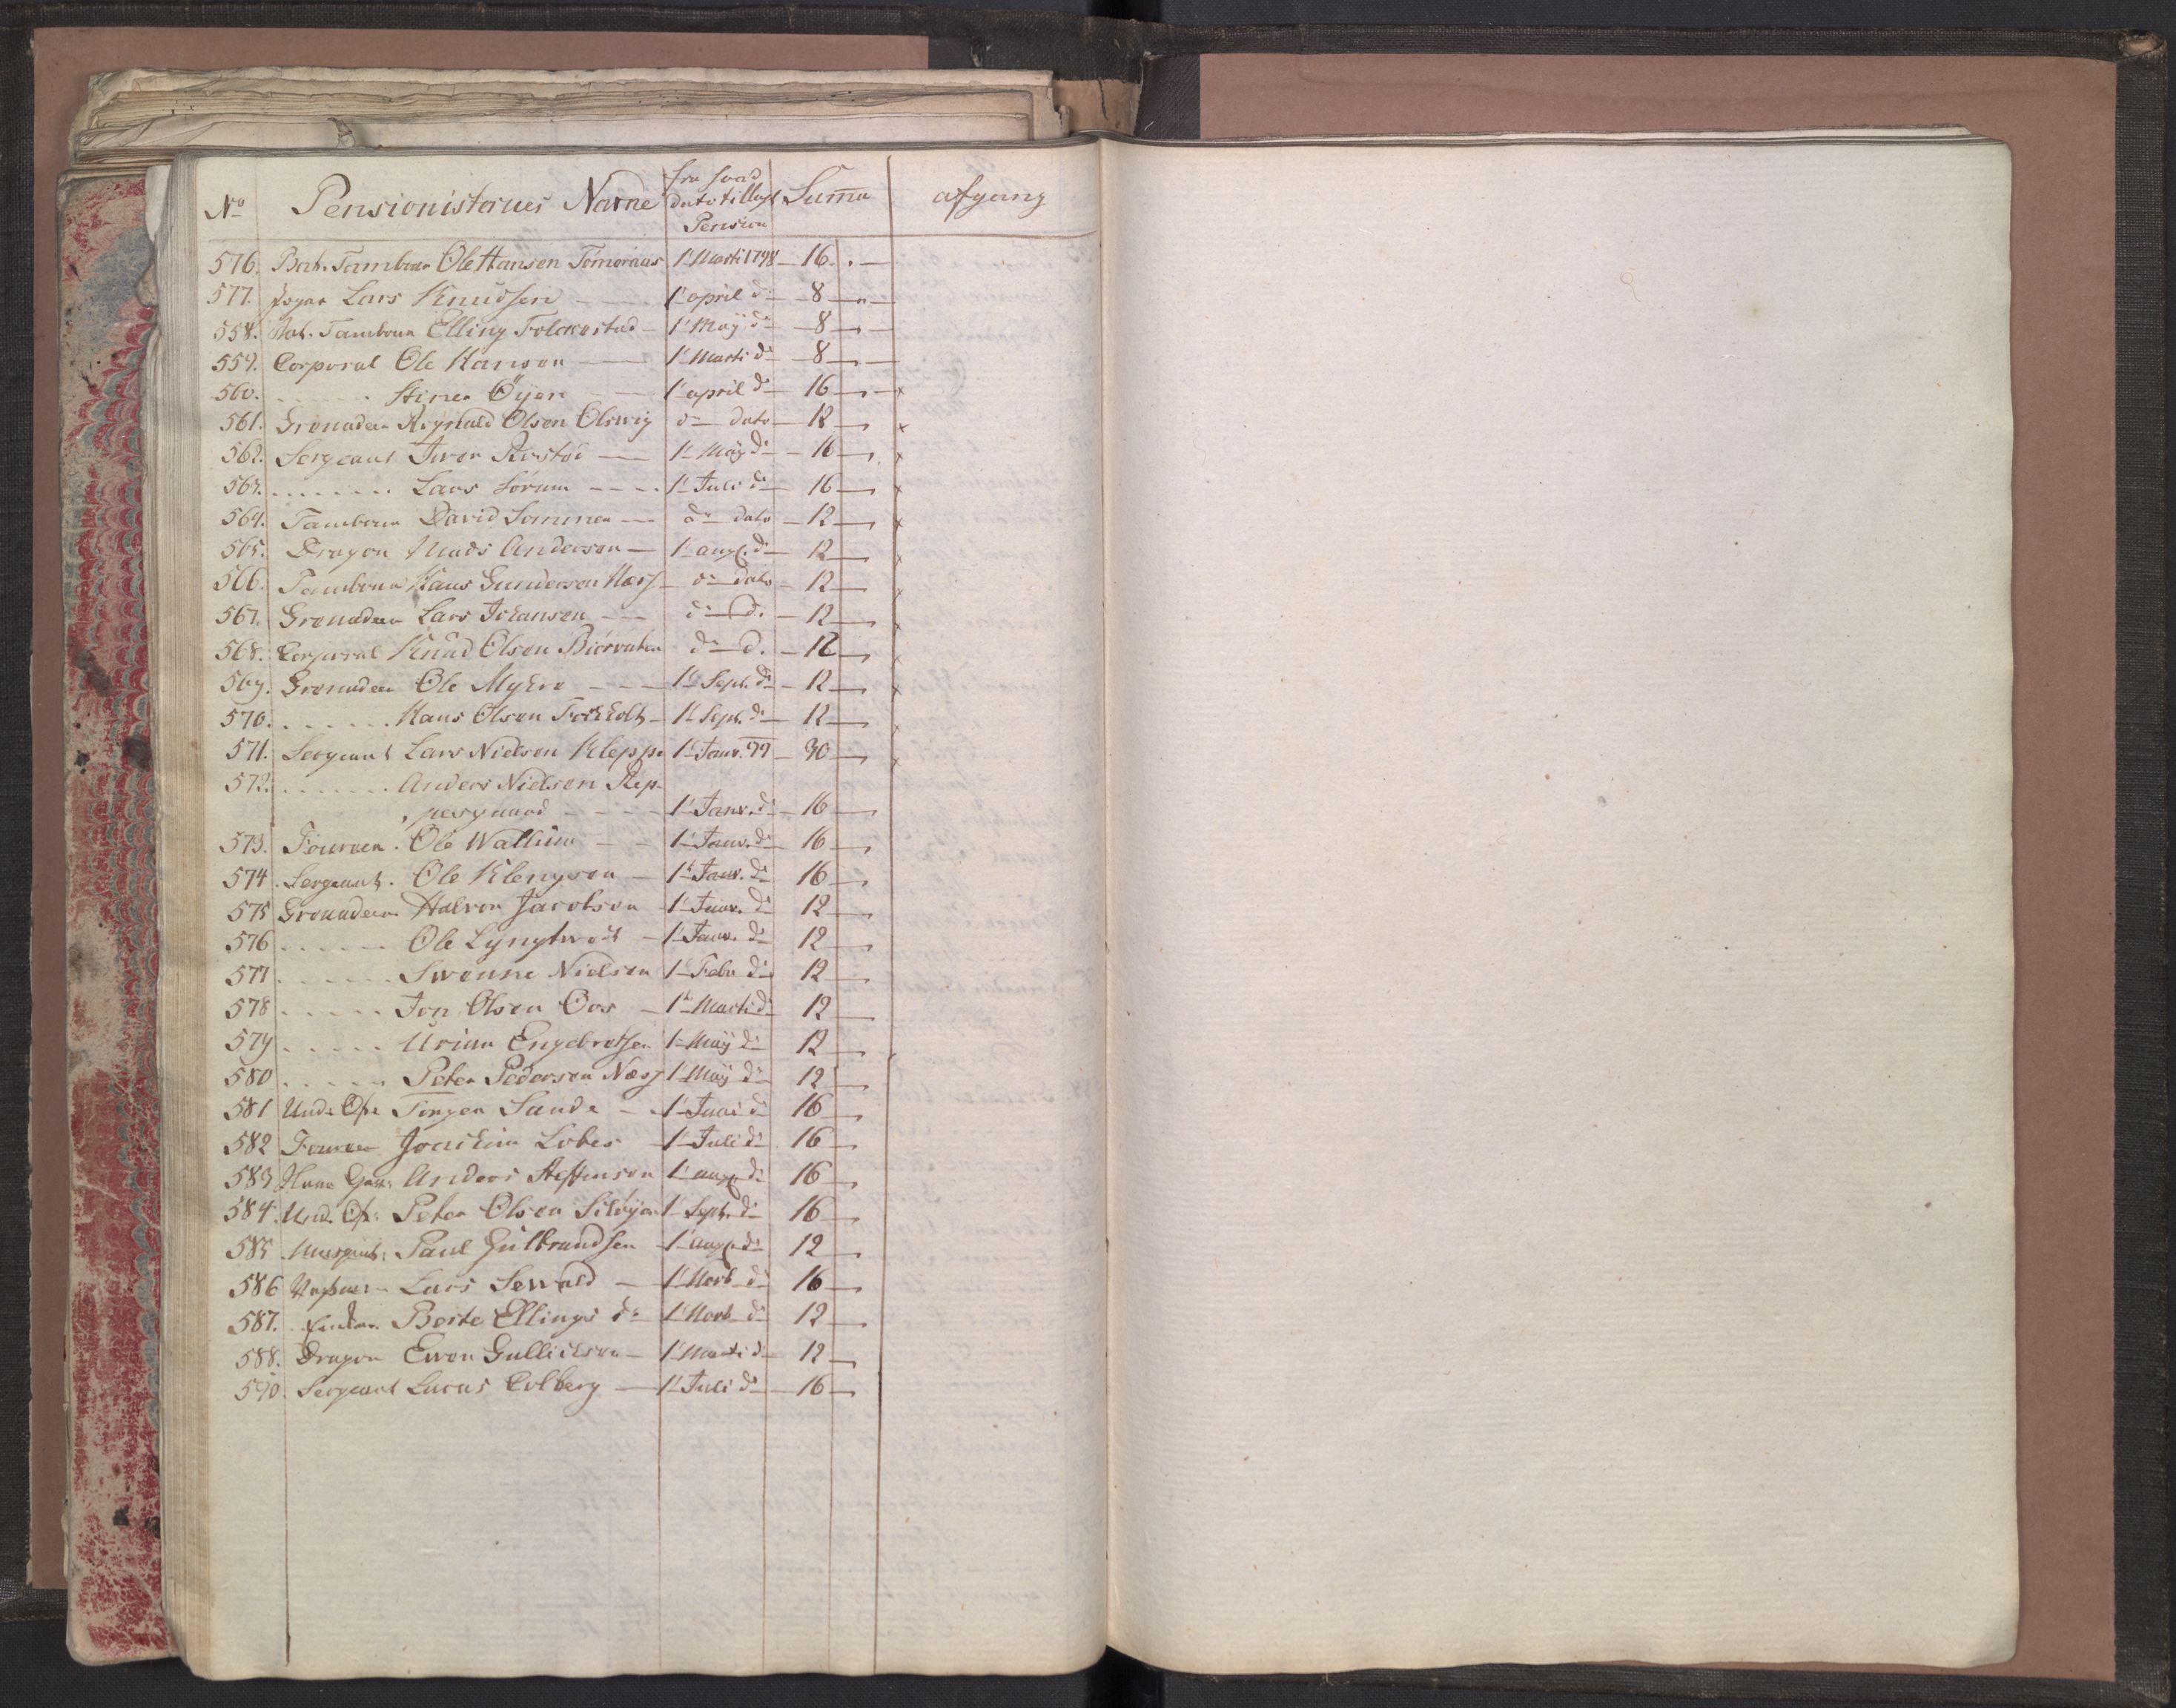 No Pensionisternes Navne fra hvad dato tillagt Pension Suma afgang
576. Bat. Tambour Ole Hansen 1t Marti 1798 16
577. Lars Knudsen 1t april do 8
558. Bat. Tambour Elling Folckestad 1t Maÿ do 8
559. Corporal Ole Hansen 1t Marti do 8
560. Öÿen 1t april do 16 x
561. Grenadeer Olsen do dato 12 x
562. Sergeant Iver 1t Maÿ do 16 x
563. Lars Sörum 1t Juli do 16 x
564. Tambour David Sommer do dato 12 x
565. Dragon Mads Andersen 1t aug. do 12 x
566. Tambour Hans Gundersen Næss do dato 12 x
567. Grenadeer Lars Johansen do d. 12 x
568. Corporal Knud Olsen do d. 12 x
569. Grenadeer Ole Mÿhre 1t Sept. do 12 x
570. Hans Olsen 1t Sept. do 12
571. Sergeant Lars Nielsen Kleppe 1t Janv. 99 30 x
572. Anders Nielsen Rep-
pesgaard 1t Janv. do 16
573. Foureer. Ole Wallum 1t Janv. do 16
574. Sergeant. Ole Klengsen 1t Janv. do 16
575 Grenadeer Halvor Jacobsen 1t Janv. do 12
576 Ole Lyngtwedt 1t Janv. do 12
577 Swenne Nielsen 1t Febr do 12
578 Jon Olsen Oos 1t Marti do 12
579 Engebretsen 1t Maÿ do 12
580 Peter Pedersen Næss 1t Maÿ do 12
581 Und. Of. Jörgen Sande 1t Juni do 16
582 Foureer Joachim Lobes 1t Juli do 16
583 Anders Steffensen 1t aug. do 16
584. Und. Of. Peter Olsen 1t Sept. do 16
585 Paul Gulbrandsen 1t aug. do 12
586 Lars Sewald 1t Novb do 16
587. Enken Berte Ellings dr 1t Novb do 12
588. Dragon Ewen Gullichsen 1t Marti do 12
590. Sergeant Lucas Colberg 1t Juli do 16